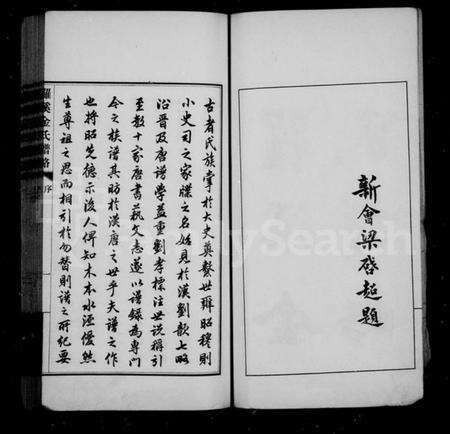 新會梁啓超題
古者氏族掌於太史奠繫世辨昭穆則
小史司之家牒之名始見於漢劉歆七略
沿晉及唐譜學益重劉孝標注世說稱引
至數十家唐書藝文志遂以譜錄為專門
今之族譜其昉於漢唐之世乎夫譜之作
也將昭先德示後人俾知木本水源優然
生尊祖之思而相引於勿替則譜之所紀要
金氏譜略 序
FamilySearch